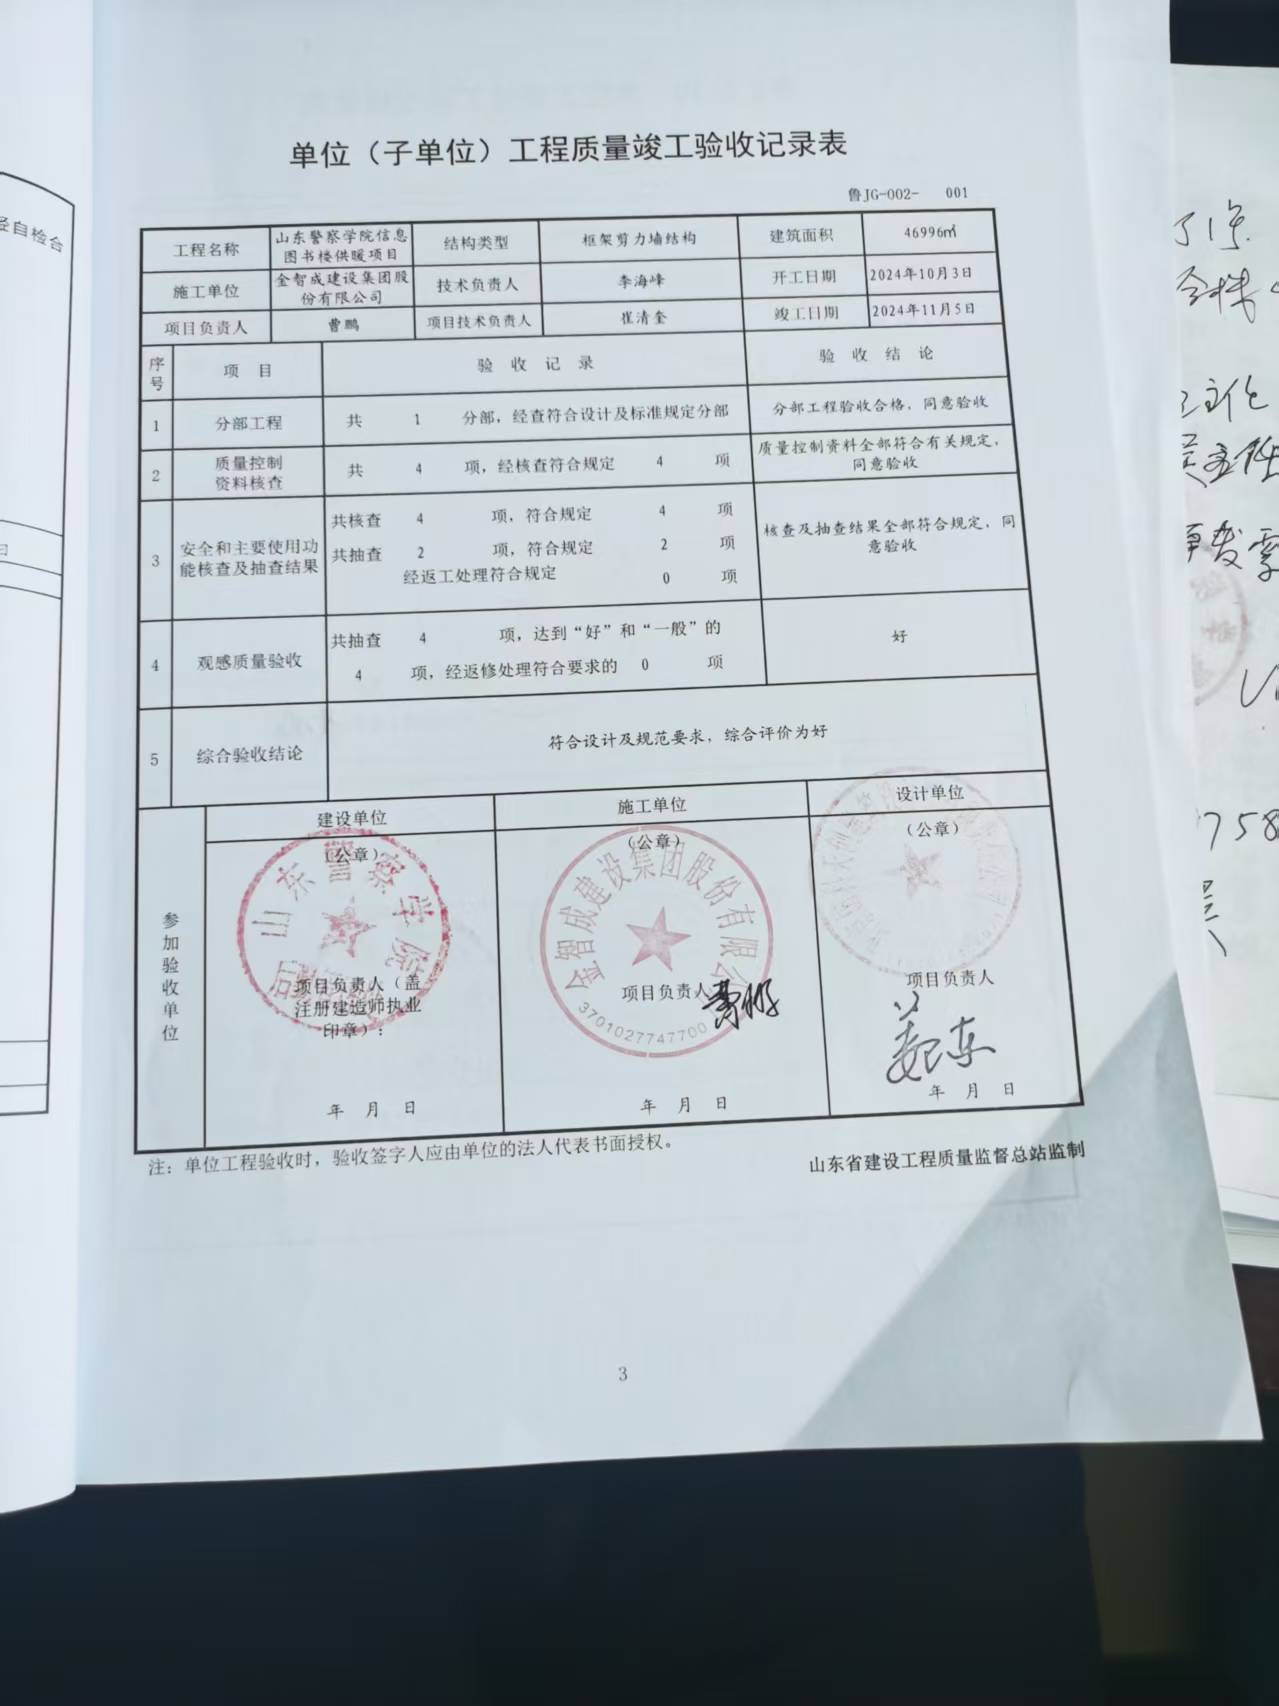 单位（子单位）工程质量竣工验收记录表
鲁JG-002- 001
工程名称
山东警察学院信息
图书楼供暖项目
结构类型
框架剪力墙结构
建筑面积
46996㎡
施工单位
金智成建设集团股
份有限公司
技术负责人
李海峰
开工日期
2024年10月3日
项目负责人
曹鹏
项目技术负责人
崔清奎
竣工日期
2024年11月5日
序
号
项 目
验 收 记 录
验 收 结 论
1
分部工程
共 1 分部，经查符合设计及标准规定分部
分部工程验收合格，同意验收
2
质量控制
资料核查
共 4 项，经核查符合规定 4 项
质量控制资料全部符合有关规定，
同意验收
3
安全和主要使用功
能核查及抽查结果
共核查 4 项，符合规定 4 项
共抽查 2 项，符合规定 2 项
经返工处理符合规定 0 项
核查及抽查结果全部符合规定，同
意验收
4
观感质量验收
共抽查 4 项，达到“好”和“一般”的
4 项，经返修处理符合要求的 0 项
好
5
综合验收结论
符合设计及规范要求，综合评价为好
参
加
验
收
单
位
建设单位
（公章）
山东警察学院
项目负责人（盖
注册建造师执业
印章）：
年 月 日
施工单位
（公章）
金智成建设集团股份有限公
项目负责人
曹鹏
3701027747700
年 月 日
设计单位
（公章）
项目负责人
年 月 日
注：单位工程验收时，验收签字人应由单位的法人代表书面授权。
山东省建设工程质量监督总站监制
3
经自检合